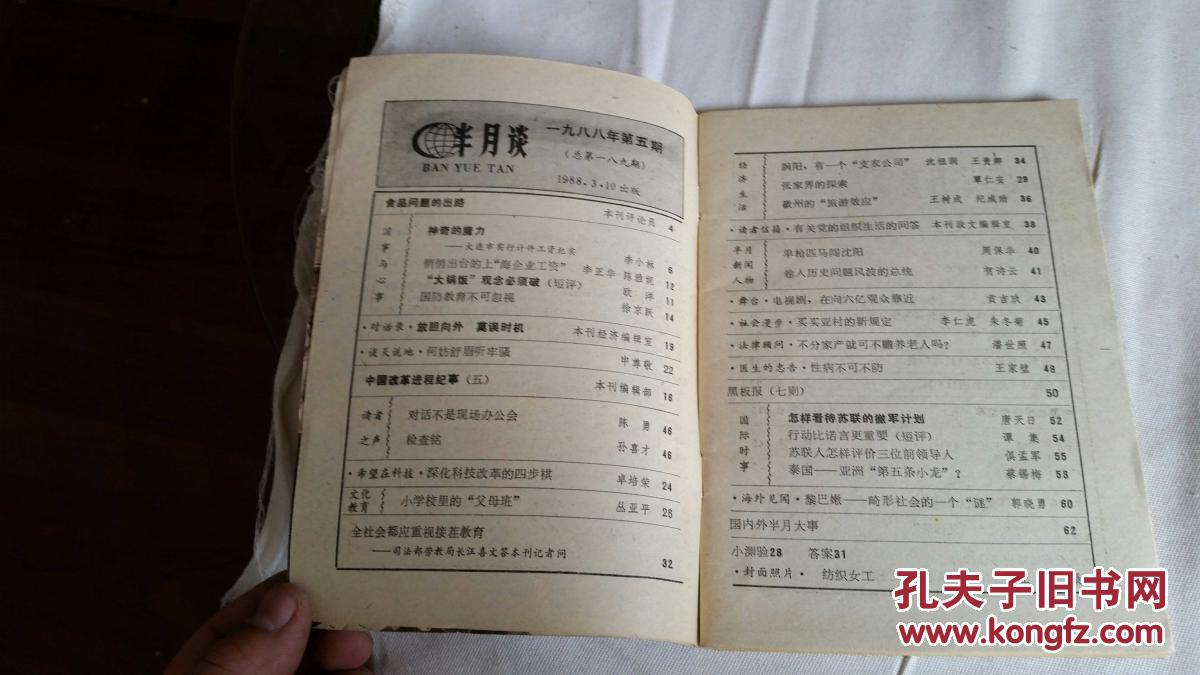 半月谈
BAN YUE TAN
一九八八年第五期
(总第一八九期)
1988.3.10出版
食品问题的出路
本刊评论员 4
国事与心事
神奇的魔力
——大连市实行计件工资纪实 李小林 6
悄悄出台的上“海企业工资” 李正华 陈雅妮 12
“大锅饭”观念必须破(短评) 欧洋 11
国防教育不可忽视 徐京跃 14
·对话录·放胆向外 莫误时机 本刊经济编辑室 19
·谈天说地·何妨舒眉听牢骚 申尊敬 22
中国改革进程纪事(五) 本刊编辑部 16
读者之声
对话不是现场办公会 陈勇 46
检查铭 孙喜才 46
·希望在科技·深化科技改革的四步棋 卓培荣 24
文化教育
小学校里的“父母班” 丛亚平 26
全社会都应重视接茬教育
——司法部劳教局长江喜文答本刊记者问 32
经济生活
涡阳,有一个“支农公司” 沈祖润 王贵卿 34
张家界的探索 覃仁安 29
徽州的“旅游效应” 王树成 纪成晧 36
·读者信箱·有关党的组织生活的问答 本刊政文编辑室 38
半月新闻人物
单枪匹马闯沈阳 周保华 40
卷入历史问题风波的总统 贺诗云 41
·舞台·电视剧,在向六亿观众靠近 贡吉玖 43
·社会漫步·买买亚村的新规定 李仁虎 朱冬菊 45
·法律顾问·不分家产就可不赡养老人吗? 潘世照 47
·医生的忠告·性病不可不防 王家壁 48
黑板报(七则) 50
国际时事
怎样看待苏联的撤军计划 唐天日 52
行动比诺言更重要(短评) 谭集 54
苏联人怎样评价三位前领导人 俱孟军 55
泰国——亚洲“第五条小龙”? 蔡锡梅 58
·海外见闻·黎巴嫩——畸形社会的一个“谜” 郭晓勇 60
国内外半月大事 62
小测验28 答案31
·封面照片· 纺织女工
孔夫子旧书网
www.kongfz.com